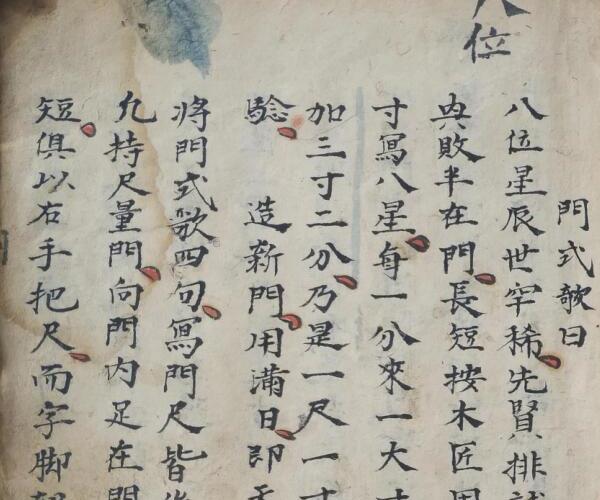 位
門式歌曰
八位星辰世罕稀先賢排
興敗半在門長短按木匠用
寸寫八星每一分來一大寸
加三寸二分乃是一尺一寸
驗
造新門用滿日即
將門式歌四句寫門尺皆
九持尺量門向門內足在門
短俱以右手把尺而字脚